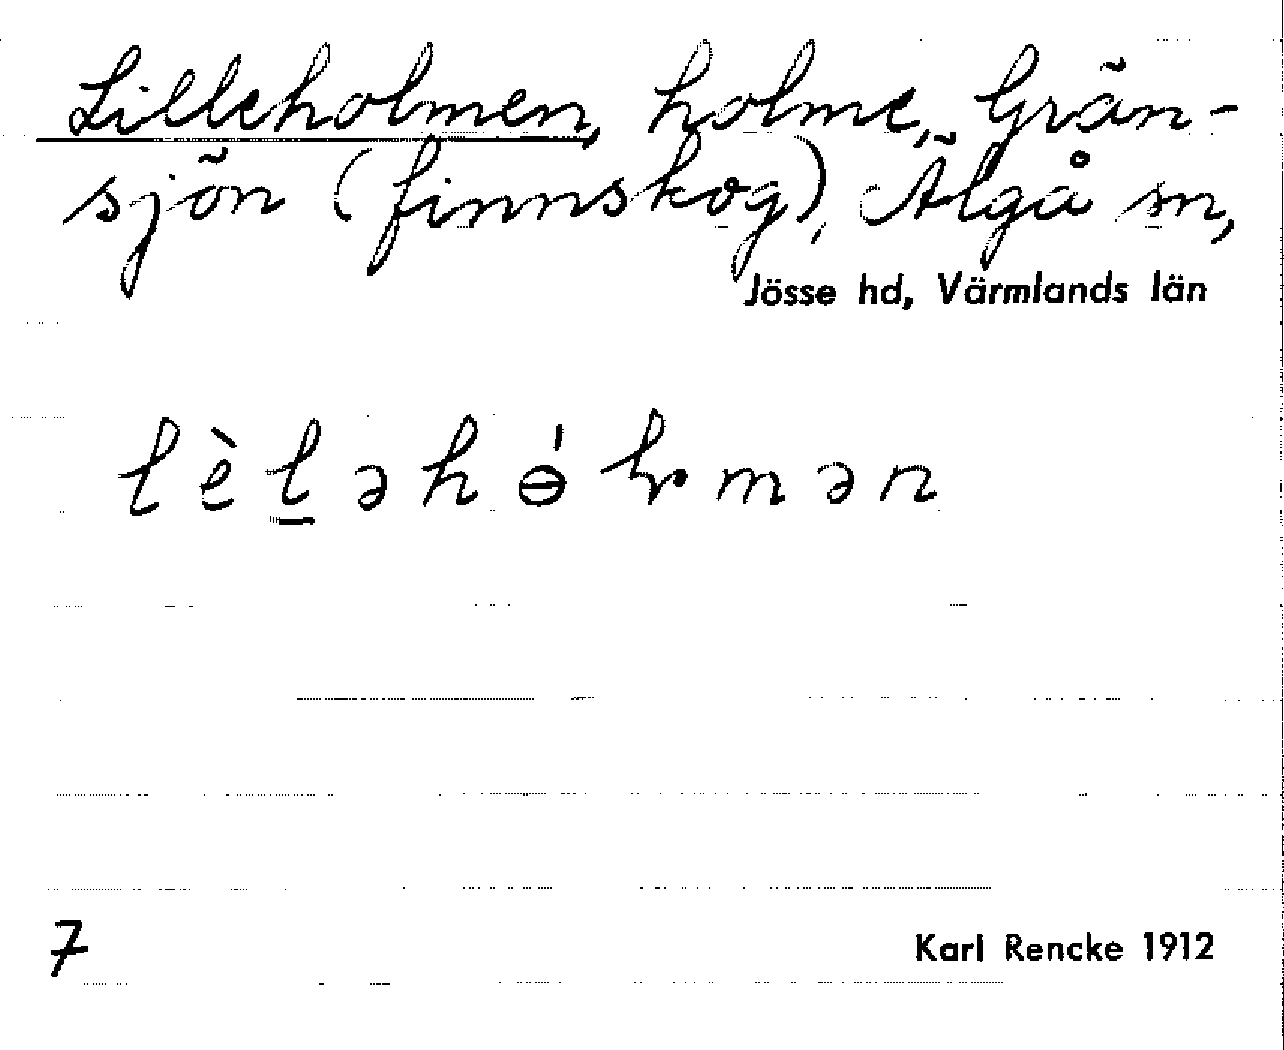 Lilleholmen, holme, Grän-
sjön (finnskog), Älgå sn,
Jösse hd, Värmlands län
lèl̲əhɵ́ɽmən
7
Karl Rencke 1912